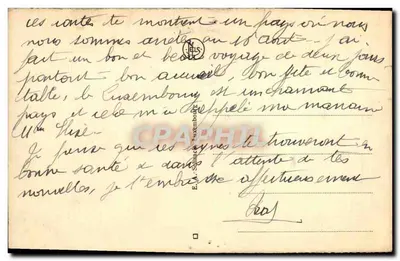 ces cartes te montrent un pays où nous
nous sommes arrêtés au 15 Aout. J'ai
fait un bon et beau voyage de deux jours
partout bon accueil, bon gîte et bonne
table, le Luxembourg est un charmant
pays et cela m'a rappelé ma
Je pense que ces lignes te trouveront en
bonne santé et dans l'attente de tes
nouvelles, je t'embrasse affectueusement